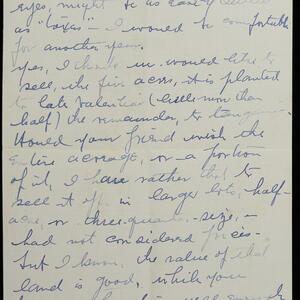 eyes, might be as easily
as "taxes" — I would be comfortable
for another year.
Yes, I think we would like to
sell, the five acres, it is planted
to late Valencias (little more than
half) the remainder, to
Would your friend wish the
entire acreage, or a portion
of it, I have rather that to
sell it off in larger lots, half-
acre, or three-quarter size, —
had not considered prices —
But I know the value of that
land is good, while your